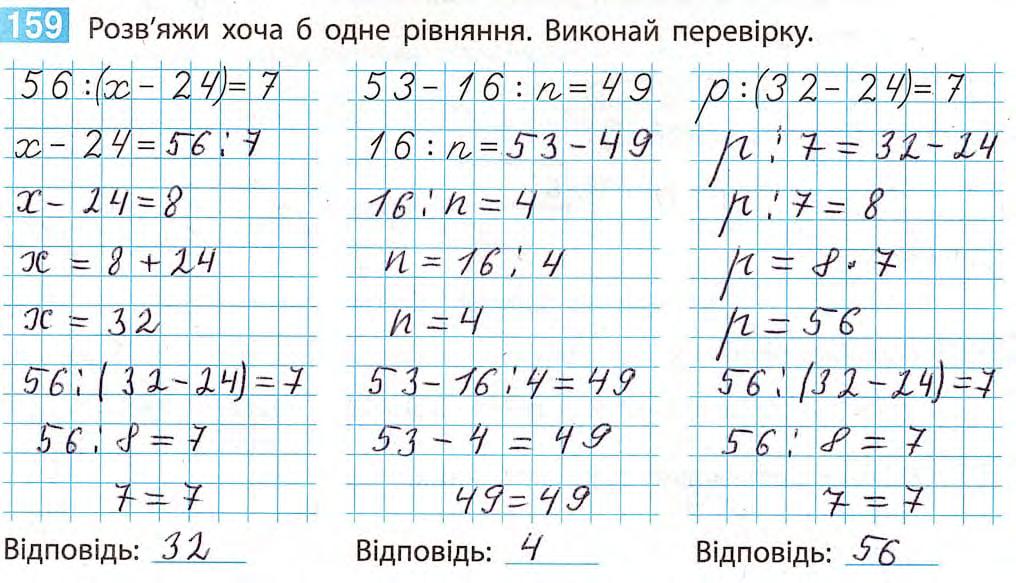 159 Розв'яжи хоча б одне рівняння. Виконай перевірку.
56:(x-24)=7
x-24=56:7
x-24=8
x=8+24
x=32
56:(32-24)=7
56:8=7
7=7
Відповідь: 32
53-16:n=49
16:n=53-49
16:n=4
n=16:4
n=4
53-16:4=49
53-4=49
49=49
Відповідь: 4
p:(32-24)=7
p:7=32-24
p:7=8
p=8·7
p=56
56:(32-24)=7
56:8=7
7=7
Відповідь: 56